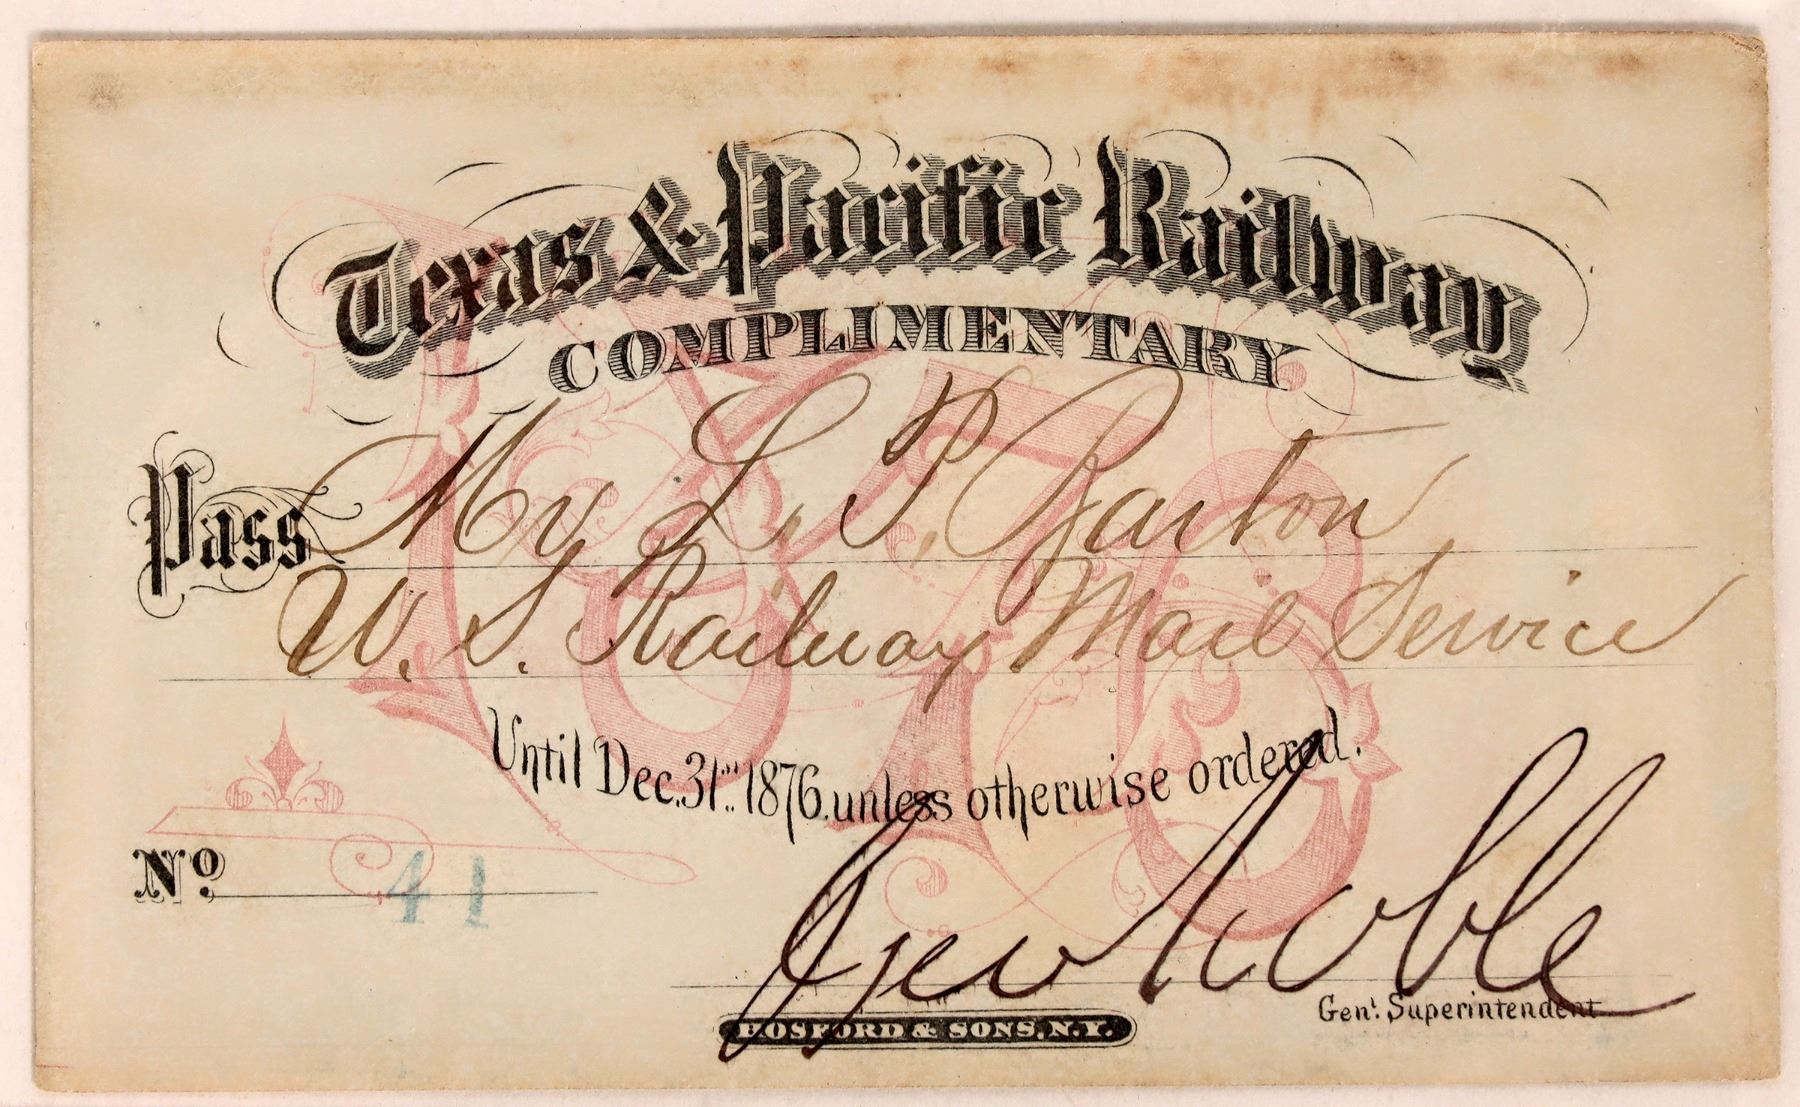 Texas & Pacific Railway
COMPLIMENTARY
Pass Mr L. P. Barton
U. S. Railway Mail Service
Until Dec. 31st 1876. unless otherwise ordered.
No 41
Geo Noble
Genl Superintendent
HOSFORD & SONS, N.Y.
1876